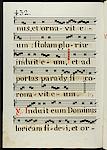 432.
mus, et ornavit e-
um: stola glori-
induit e um, et ad
portas paradisi
ronavit e um.
℣. Induit eum Dominus
loricam fidei, et or-